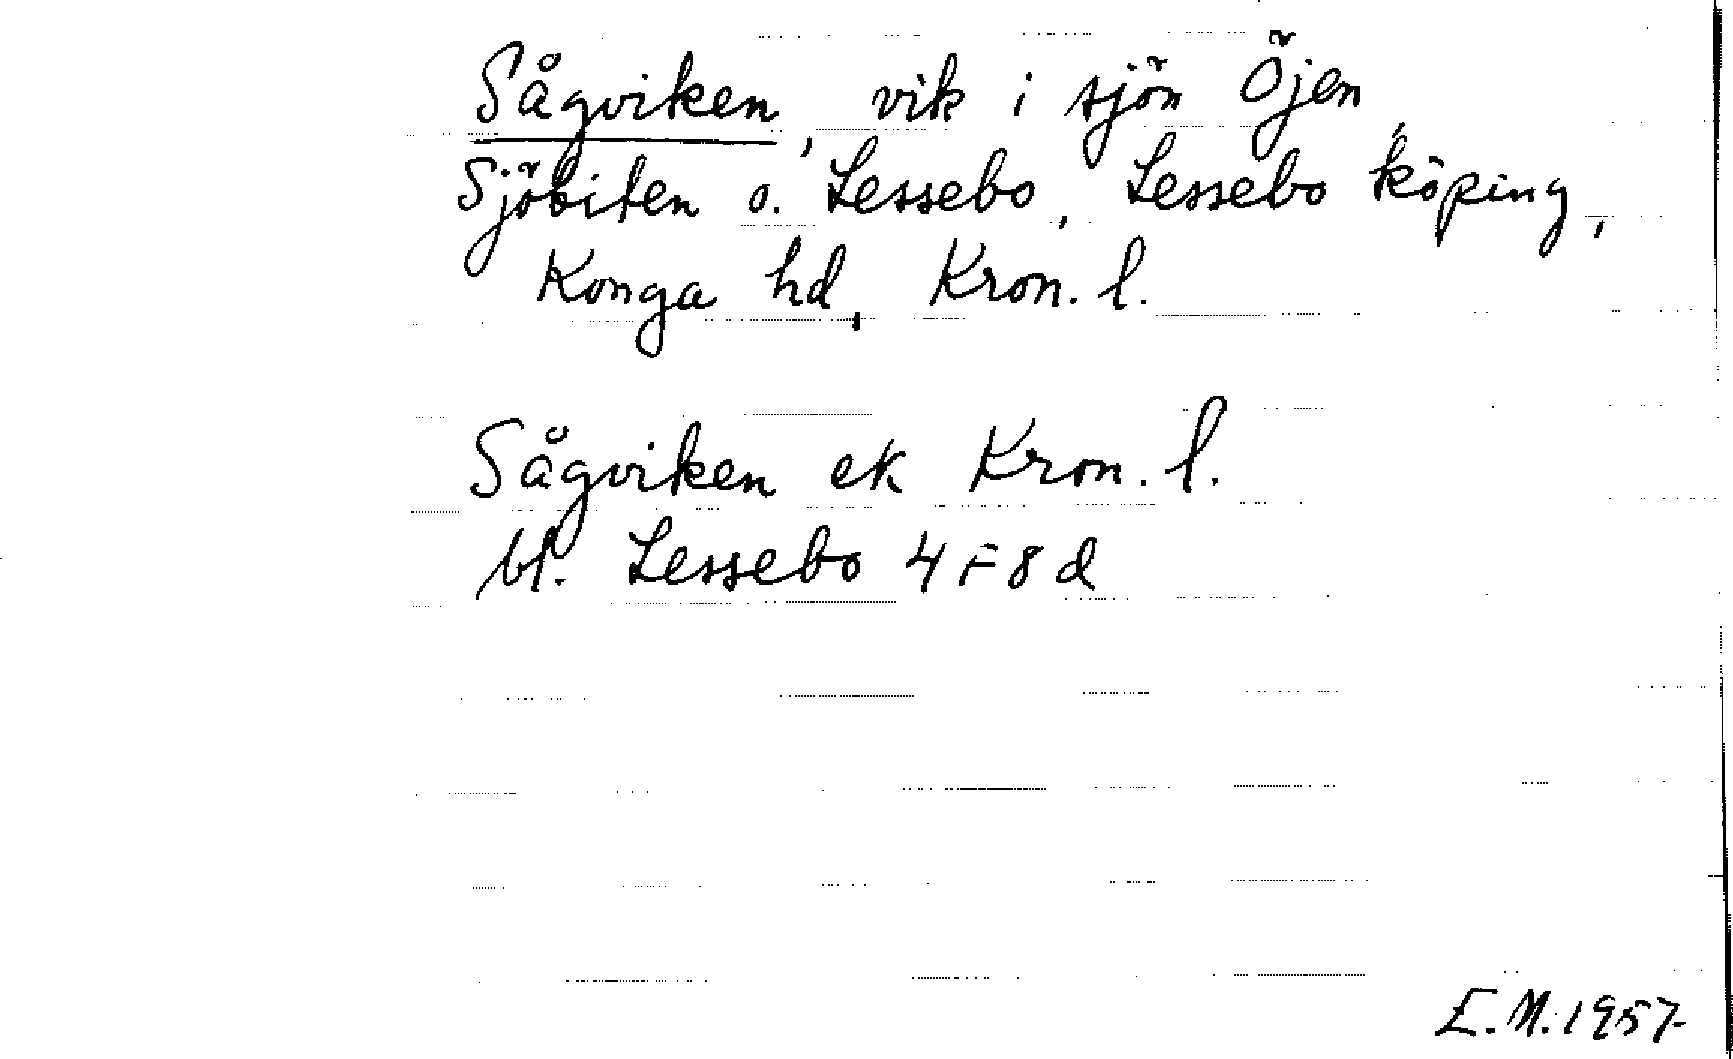 Sågviken, vik i sjön Öjen,
Sjöbiten o. Lessebo, Lessebo köping,
Konga hd, Kron. l.
Sågviken ek Kron. l.
bl. Lessebo 4 F 8 d
E.M. 1957